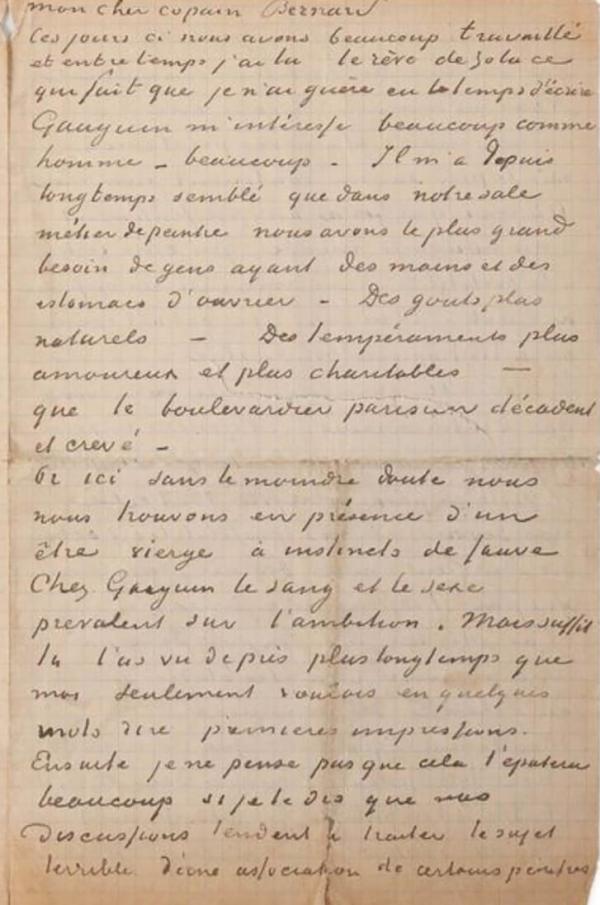 mon cher copain Bernard
Ces jours ci nous avons beaucoup travaillé
et entretemps j'ai lu le rêve de Zola ce
qui fait que je n'ai guère eu le temps d'écrire
Gauguin m'intéresse beaucoup comme
homme – beaucoup – Il m'a depuis
longtemps semblé que dans notre sale
métier de peintre nous avons le plus grand
besoin de gens ayant des mains et des
estomacs d'ouvrier – Des gouts plus
naturels – Des tempéraments plus
amoureux et plus charitables –
que le boulevardier parisien décadent
et crevé –
Or ici sans le moindre doute nous
nous trouvons en présence d'un
être vierge à instincts de fauve
Chez Gauguin le sang et le sexe
prevalent sur l'ambition. Mais suffit
tu l'as vu de près plus longtemps que
moi seulement voulais en quelques
mots dire premières impressions.
Ensuite je ne pense pas que cela t'épatera
beaucoup si je te dis que nos
Discussions tendent à traiter le sujet
terrible d'une association de certains peintres